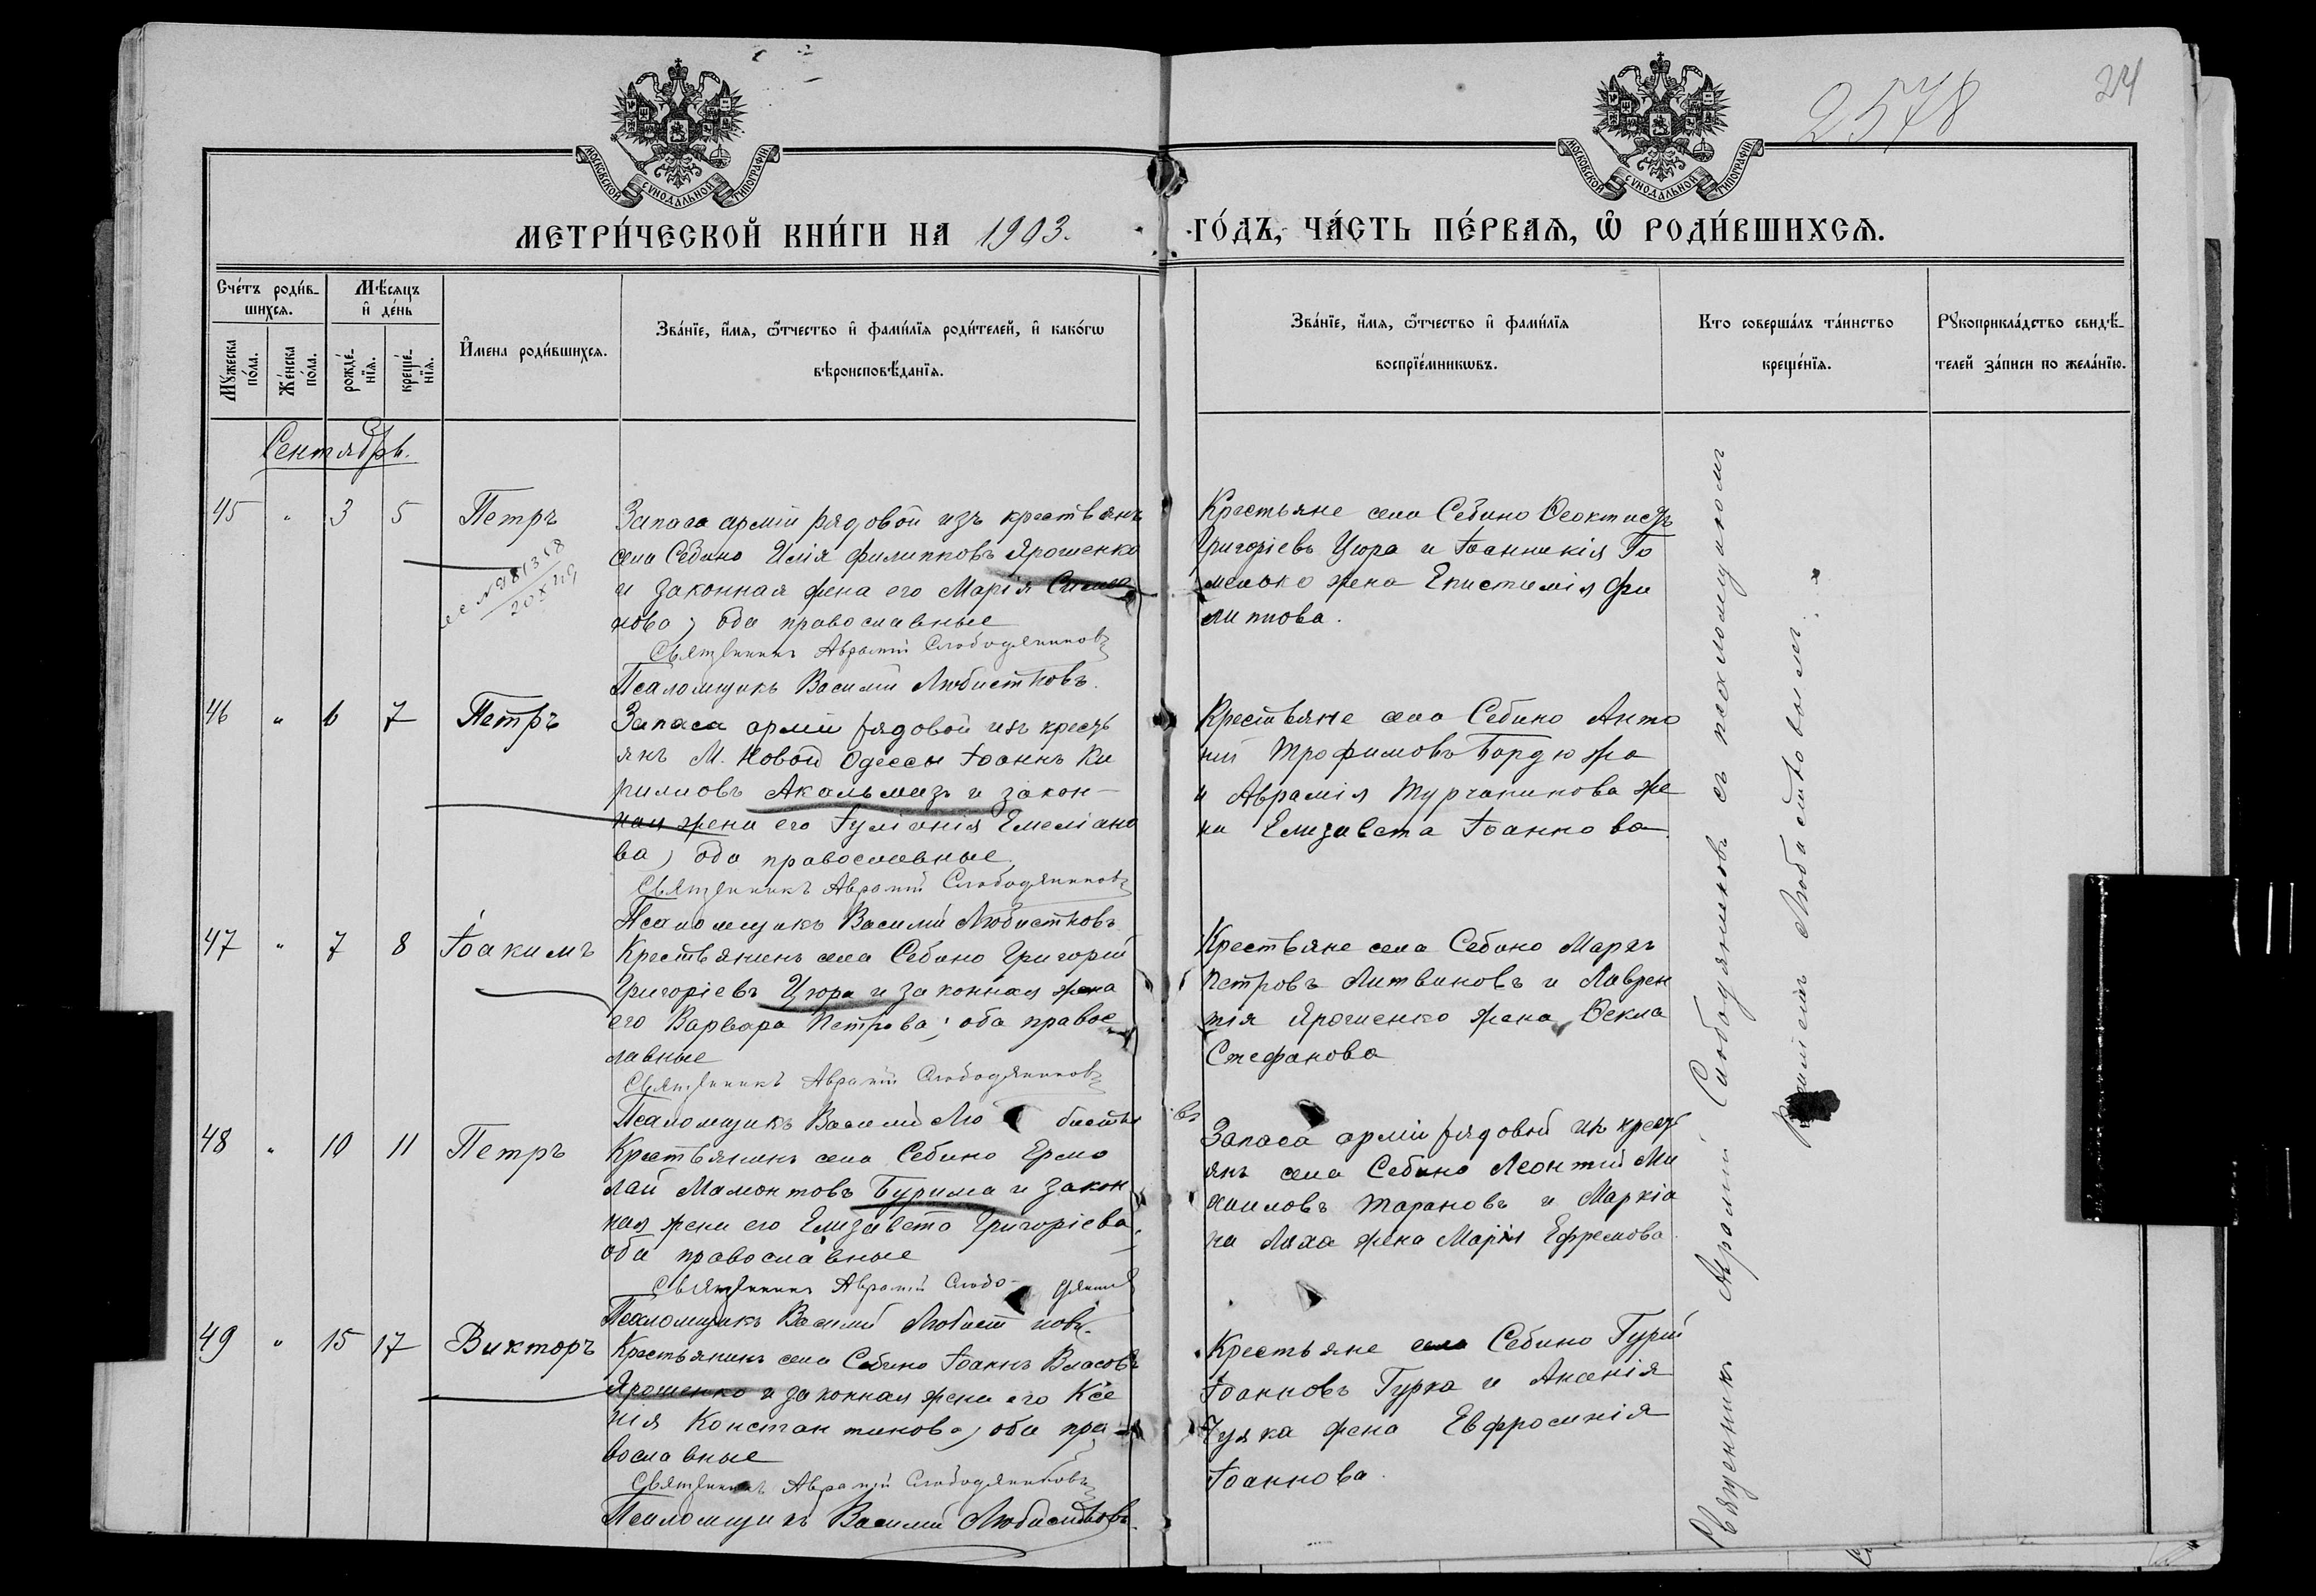 2578
24
МОСКОВСКОЙ СУНОДАЛЬНОЙ ТИПОГРАФІИ
МОСКОВСКОЙ СУНОДАЛЬНОЙ ТИПОГРАФІИ
МЕТРИ́ЧЕСКОЙ КНИ́ГИ НА 1903.
ГО́ДЪ, ЧА́СТЬ ПЕ́РВАѦ, Ѽ РОДИ́ВШИХСѦ.
Сче́тъ роди́в-
шихсѧ.
Мѣ́сѧцъ
и҆ де́нь
Мꙋ́жеска
по́ла.
Же́нска
по́ла.
рожде́-
нїѧ.
креще́-
нїѧ.
И҆мена роди́вшихсѧ.
Зва́нїе, и҆́мѧ, ѻ҆́тчество и҆ фами́лїѧ роди́телей, и҆ како́гѡ
вѣроисповѣ́данїѧ.
Зва́нїе, и҆́мѧ, ѻ҆́тчество и҆ фами́лїѧ
воспрїе́мникѡвъ.
Кто соверша́лъ та́инство
креще́нїѧ.
Рꙋкоприкла́дство свидѣ́-
телей за́писи по жела́нїю.
Сентябрь.
45 " 3 5 Петръ
Запаса арміи рядовой изъ крестьянъ
села Себино Илія Филипповъ Ярошенко
и законная жена его Марія Симео
нова, оба православные
Священникъ Аврамій Слободяниковъ
Псаломщикъ Василій Любистковъ.
Крестьяне села Себино Ѳеоктистъ
Григоріевъ Цюра и Іоанникія Го
менько жена Епистимія Фи
липпова.
46 " 6 7 Петръ
Запаса арміи рядовой изъ кресть
янъ М. Новой Одессы Іоаннъ Ки
риловъ Акальмазъ и закон-
ная жена его Іуліанія Емеліано
ва, оба православные
Священникъ Аврамій Слободяниковъ
Псаломщикъ Василій Любистковъ
Крестьяне села Себино Анто
ній Трофимовъ Бордюжа
и Аврамія Турчанинова же
на Елизавета Іоаннова
47 " 7 8 Іоакимъ
Крестьянинъ села Себино Григорій
Григоріевъ Цюра и законная жена
его Варвара Петрова; оба правос
лавные
Священникъ Аврамій Слободяниковъ
Псаломщикъ Василій Любистко
въ
Крестьяне села Себино Маркъ
Петровъ Литвиновъ и Лаврен
тія Ярошенко жена Ѳекла
Стефанова
48 " 10 11 Петръ
Крестьянинъ села Себино Ермо
лай Мамонтовъ Бурима и закон
ная жена его Елизавета Григоріева
оба православные
Священникъ Аврамій Слободяник
Псаломщикъ Василій Любистковъ.
Запаса арміи рядовой изъ кресть
янъ села Себино Леонтій Ми
хаиловъ Тарановъ и Маркіа
на Ляха жена Марія Ефремова
49 " 15 17 Викторъ
Крестьянинъ села Себино Іоаннъ Власовъ
Ярошенко и законная жена его Ксе
нія Константинова, оба пра
вославные
Священникъ Аврамій Слободяниковъ
Псаломщикъ Василій Любистковъ.
Крестьяне села Себино Гурій
Іоанновъ Гурка и Ананія
Чуяка жена Евфросинія
Іоаннова.
Священникъ Аврамій Слободяниковъ съ псаломщикомъ
Василіемъ Любистковымъ.